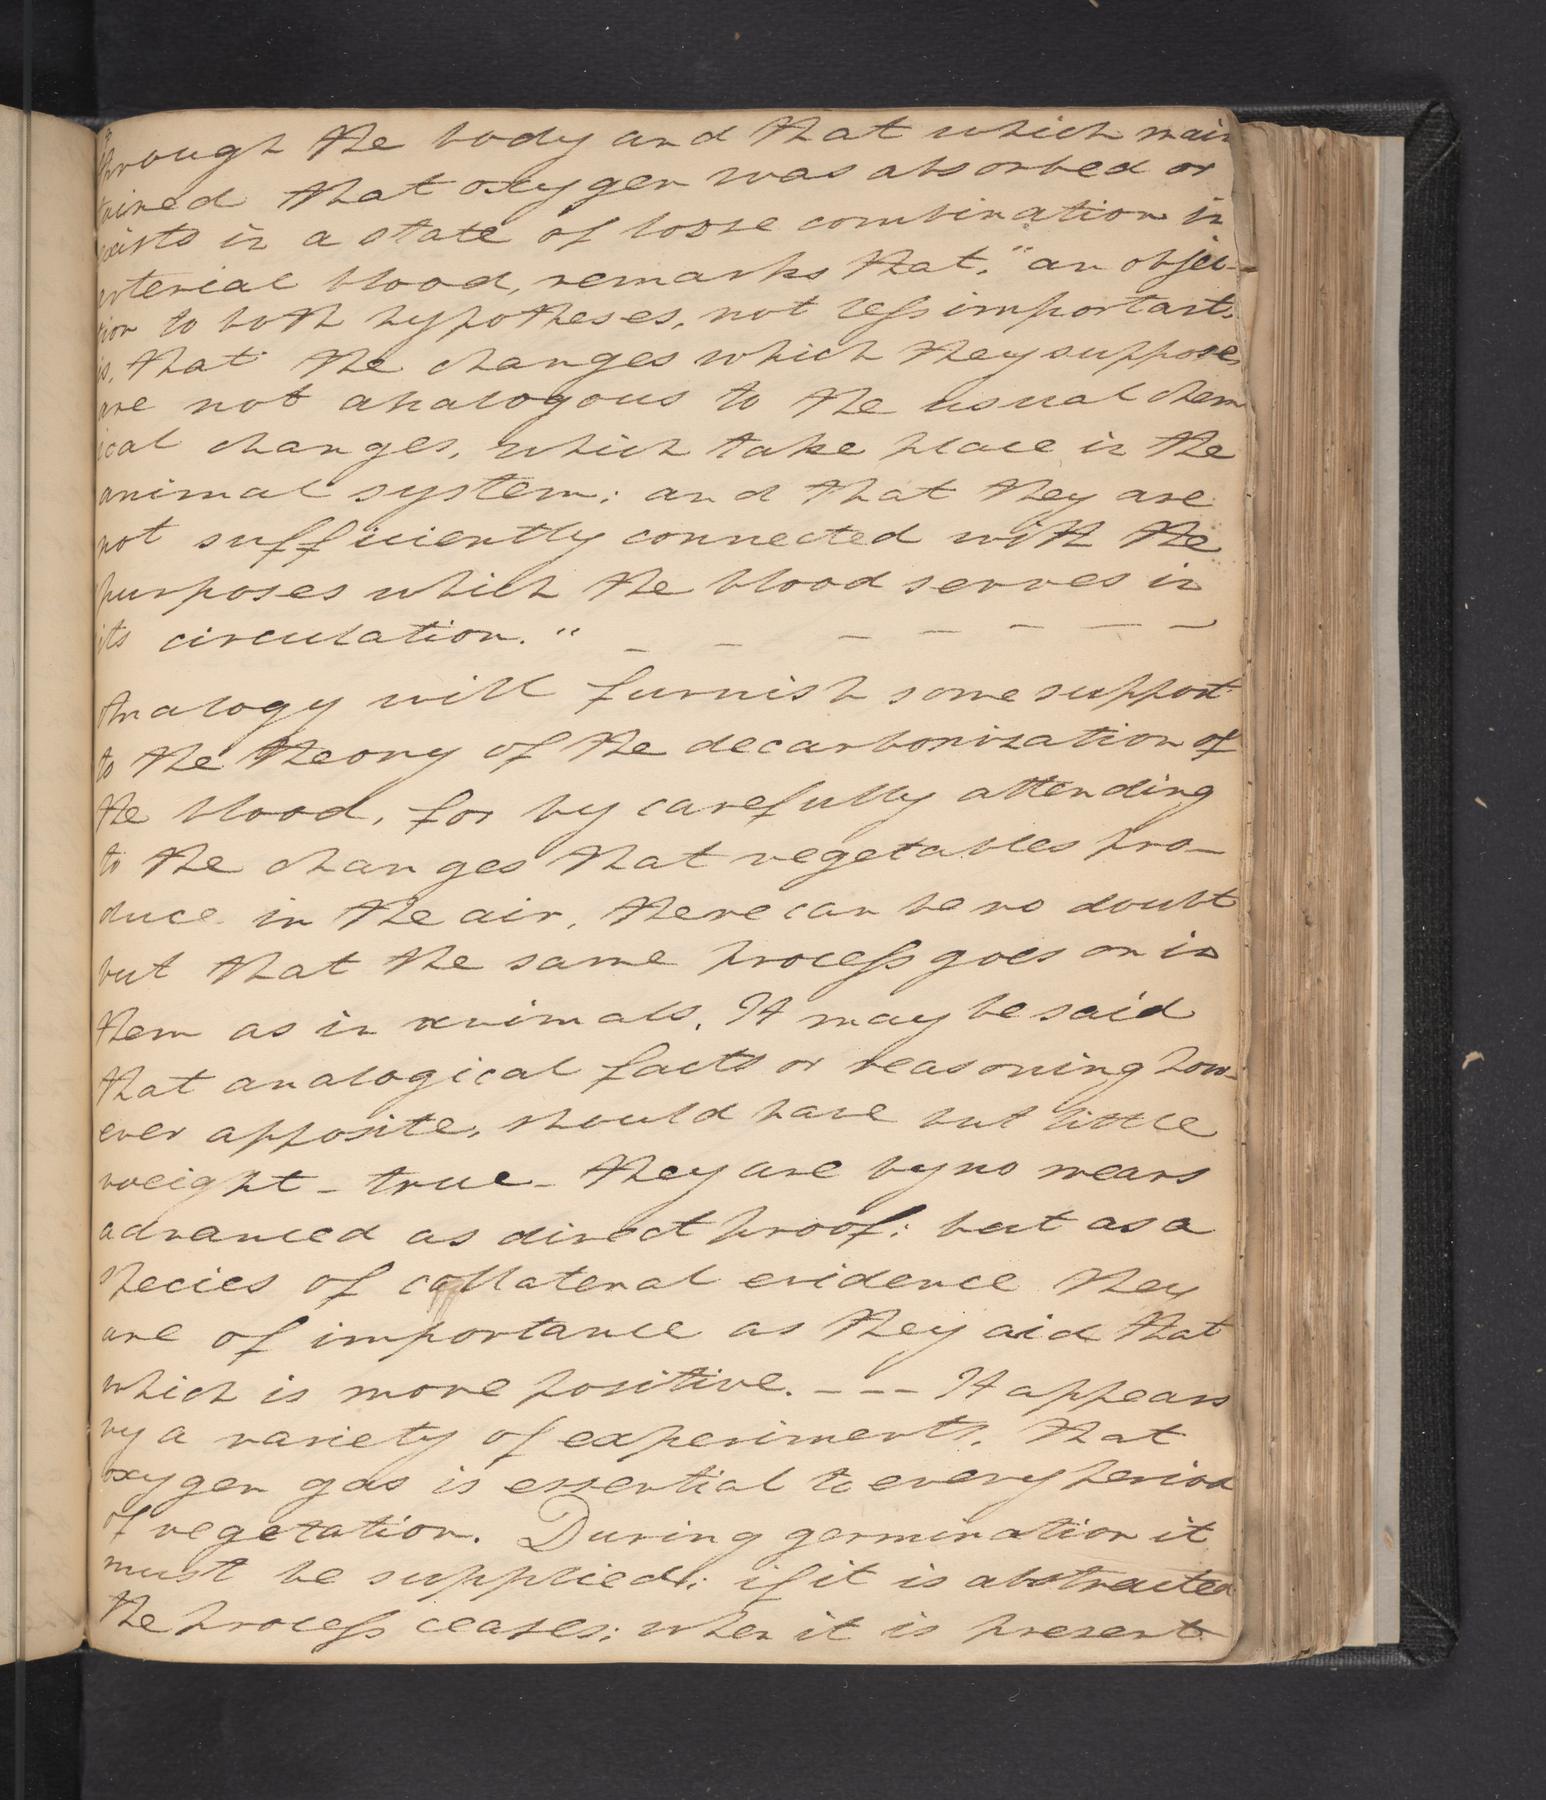 through the body and that which main
tained that oxygen was absorbed or
exists in a state of loose combination in
arterial blood, remarks that, "an objec-
tion to both hypotheses, not less important,
is, that the changes which they suppose
are not analogous to the usual chem
ical changes, which take place in the
animal system; and that they are
not sufficiently connected with the
purposes which the blood serves in
its circulation." _ _ _ _ _ _ _
Analogy will furnish some support
to the theory of the decarbonization of
the blood, for by carefully attending
to the changes that vegetables pro-
duce in the air, there can be no doubt
but that the same process goes on in
them as in animals. It may be said
that analogical facts or reasoning how-
ever apposite, should have but little
weight - true - they are by no means
advanced as direct proof: but as a
species of collateral evidence they
are of importance as they aid that
which is more positive. - - - It appears
by a variety of experiments, that
oxygen gas is essential to every period
of vegetation. During germination it
must be supplied; if it is abstracted
the process ceases; when it is present